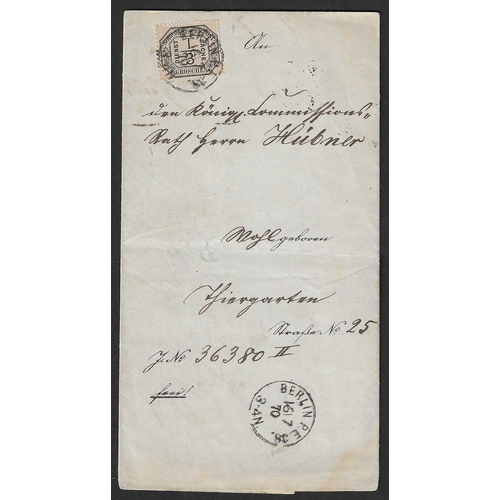 DIENST SACHE
GROSCHEN
An
den Königl. Commissions-
Rath Herrn Hübner
Wohlgeboren
Thiergarten
Straße No 25
J. No 36380 II
frei!
BERLIN P.E. 38.
16 7
70
3-4 N